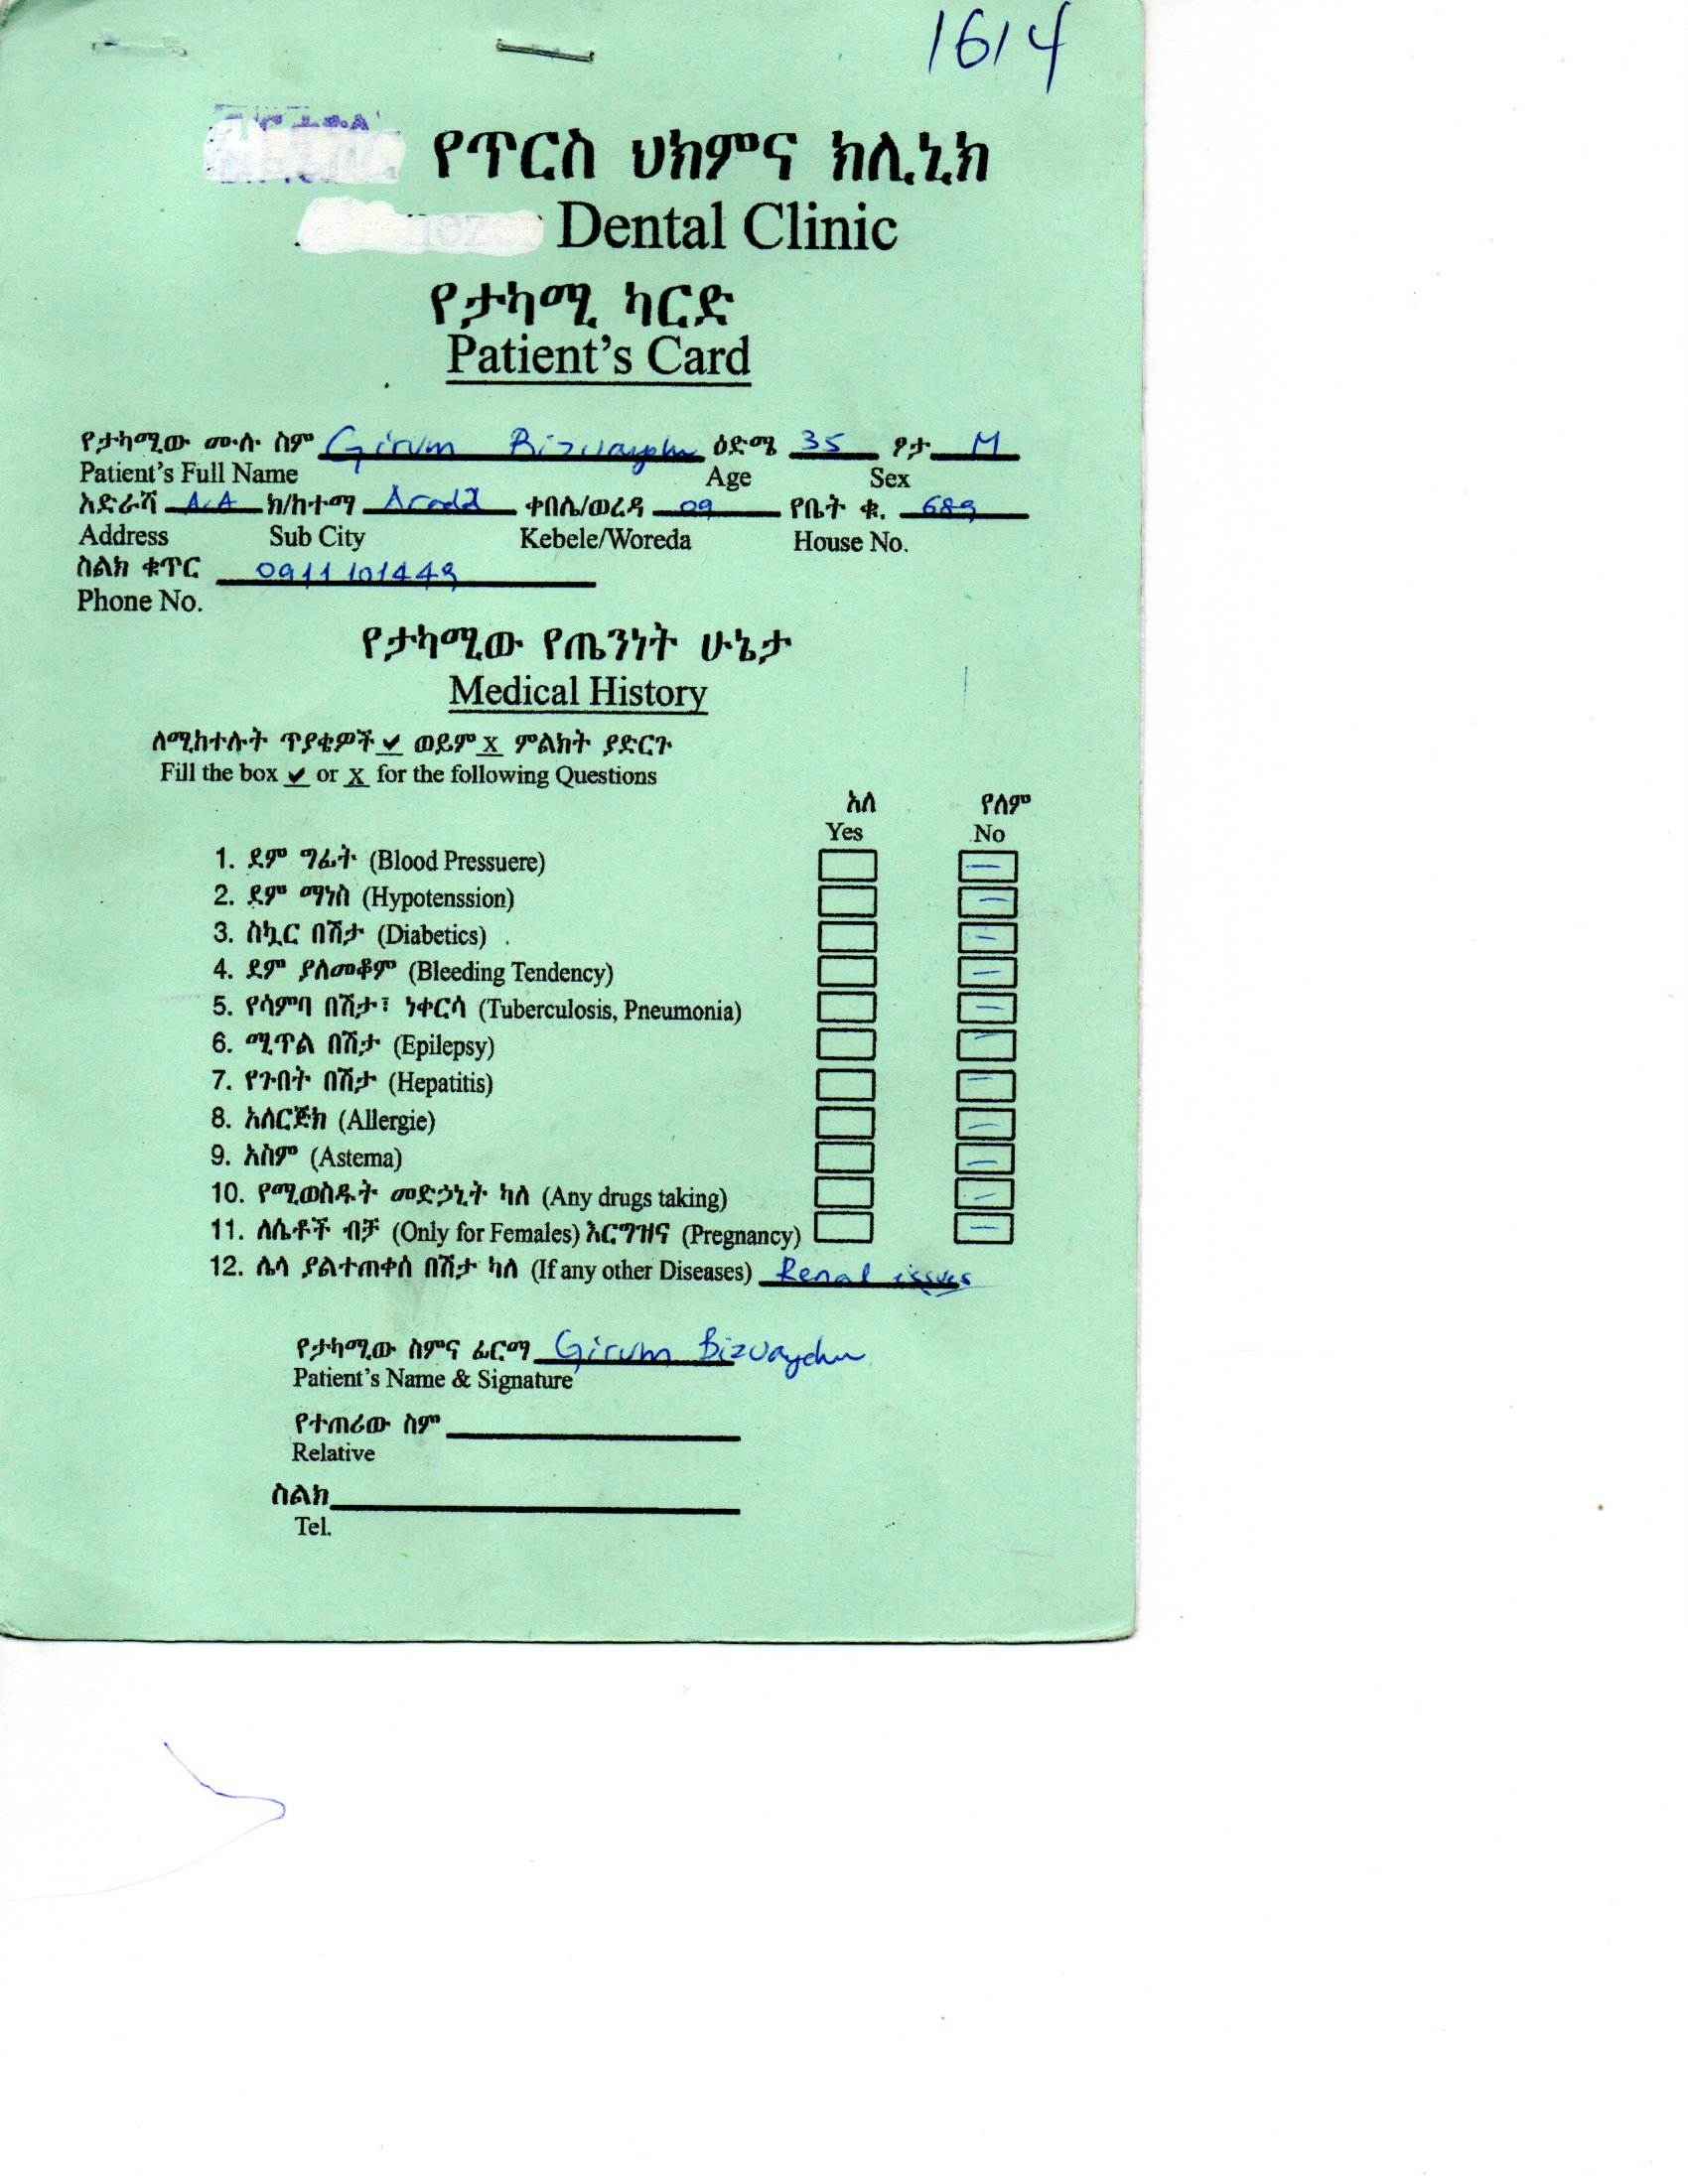 1614
የጥርስ ህክምና ክሊኒክ
Dental Clinic
የታካሚ ካርድ
Patient's Card
የታካሚው ሙሉ ስም Girum Bizuayehu ዕድሜ 35 ፆታ M
Patient's Full Name Age Sex
አድራሻ A.A ክ/ከተማ Arada ቀበሌ/ወረዳ 09 የቤት ቁ. 689
Address Sub City Kebele/Woreda House No.
ስልክ ቁጥር 0911101449
Phone No.
የታካሚው የጤንነት ሁኔታ
Medical History
ለሚከተሉት ጥያቄዎች ✔ ወይም X ምልክት ያድርጉ
Fill the box ✔ or X for the following Questions
አለ የለም
Yes No
1. ደም ግፊት (Blood Pressuere) —
2. ደም ማነስ (Hypotenssion) —
3. ስኳር በሽታ (Diabetics) —
4. ደም ያለመቆም (Bleeding Tendency) —
5. የሳምባ በሽታ፣ ነቀርሳ (Tuberculosis, Pneumonia) —
6. ሚጥል በሽታ (Epilepsy) —
7. የጉበት በሽታ (Hepatitis) —
8. አለርጅክ (Allergie) —
9. አስም (Astema) —
10. የሚወስዱት መድኃኒት ካለ (Any drugs taking) —
11. ለሴቶች ብቻ (Only for Females) እርግዝና (Pregnancy) —
12. ሌላ ያልተጠቀሰ በሽታ ካለ (If any other Diseases) Renal issues
የታካሚው ስምና ፊርማ Girum Bizuayehu
Patient's Name & Signature
የተጠሪው ስም
Relative
ስልክ
Tel.